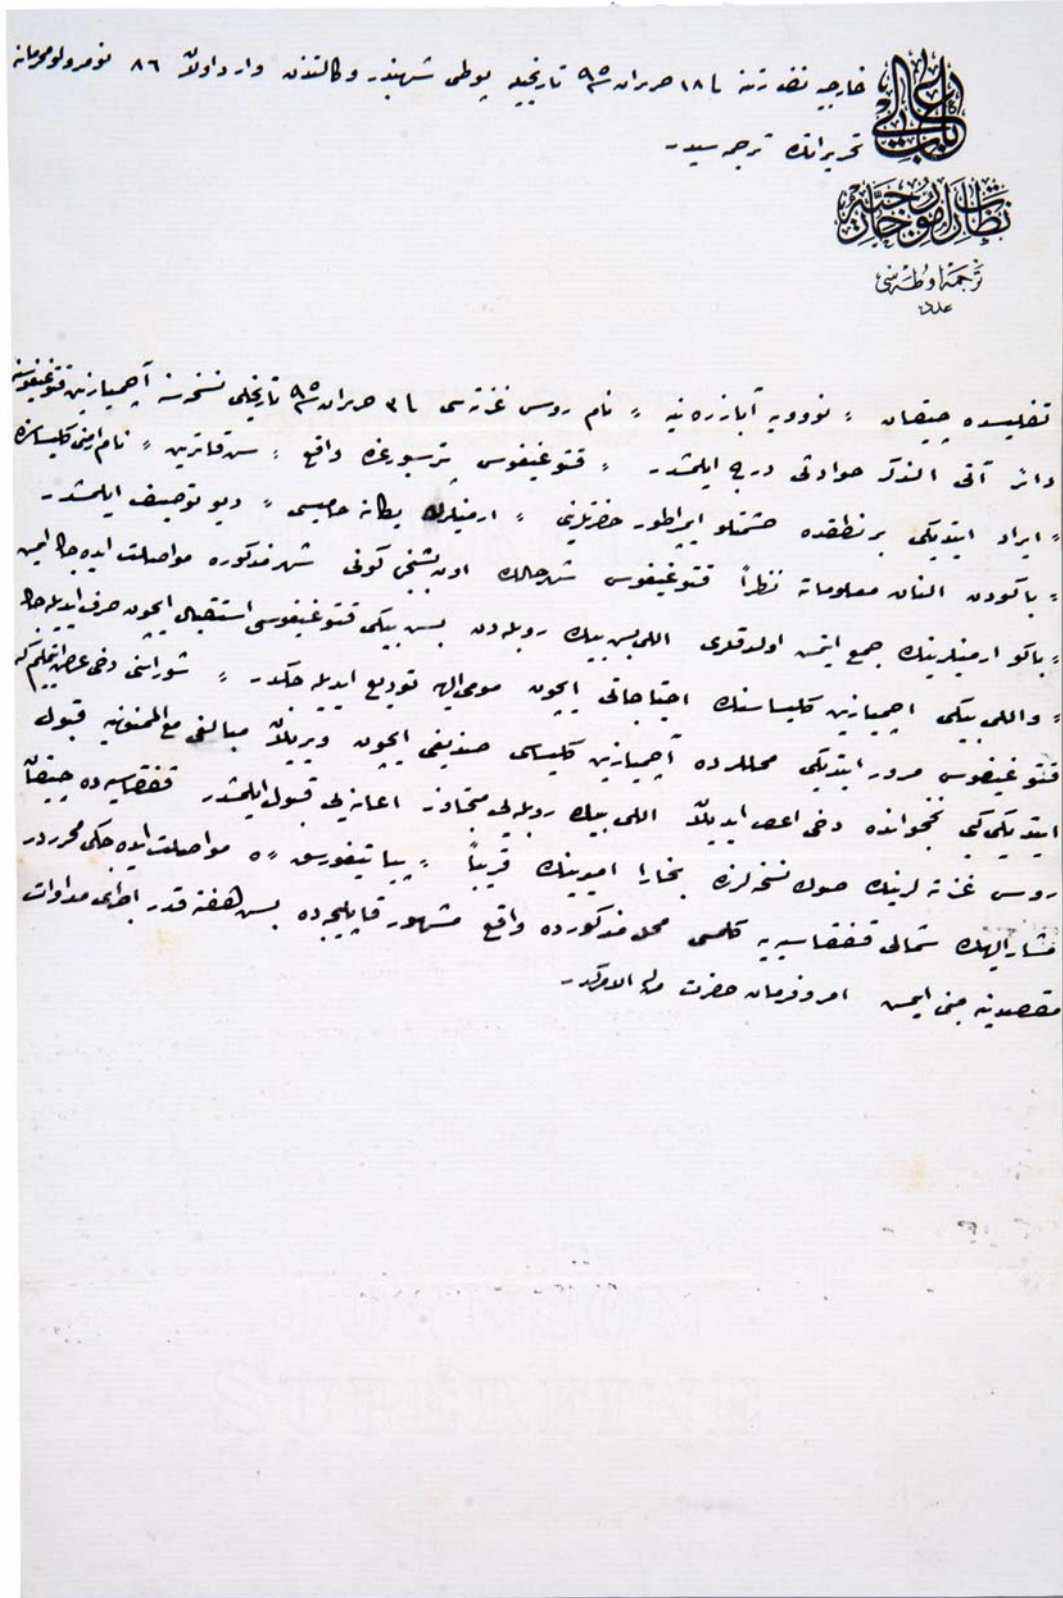 باب عالی
نظارت امور خارجیه
ترجمه اوطه‌سی
عدد
خارجیه نظارتنه فی ١٨ حزیران سنه ٩٥ تاریخیله پوطی شهبندر وکالتندن وارد اولان ٨٦ نومرولو محرمانه
تحریراتك ترجمه‌سیدر
تفلیسده چیقان « نوویه آبازره‌نیه » نام روس غزته‌سی فی ٣ حزیران سنه ٩٥ تاریخلی نسخه‌سنه آچمیازین قتوغیقوسنه
دائر آتی الذکر حوادثی درج ایلمشدر « قتوغیقوس پترسبورغده واقع « سن قاترین » نام ارمنی کلیساسنده
« ایراد ایتدیکی بر نطقده حشمتلو ایمپراطور حضرتلرینی « ارمنیلرك یکانه حامیسی » دیو توصیف ایلمشدر
« باکودن النان معلوماته نظراً قتوغیقوس شهر حالك اون بشنجی کونی شهر مذکوره مواصلت ایده‌جك ایمش
« باکو ارمنیلرینك جمع ایتمش اولدقلری اللی بش بیك روبله‌دن بش بیکی قتوغیقوسی استقبال ایچون صرف ایدیله‌جك
« واللی بیکی اچمیازین کلیساسنك احتیاجاتی ایچون مومی الیه تودیع ایدیله‌جکدر » شوراسنی دخی عرض ایتملیم که
قتوغیقوس مرور ایتدیکی محللرده آچمیازین کلیساسی صندیغی ایچون ویریلان مبالغی مع الممنونیه قبول
ایتدیکی کبی نخجوانده دخی اعطا ایدیلان اللی بیك روبله‌یی متجاوز اعانه‌یی قبول ایلمشدر قفقاسیه‌ده چیقان
روس غزته‌لرینك صوك نسخه‌لرنده بخارا امیرینك قریباً « پیاتیغورسق » ه مواصلت ایده‌جکی محرردر
مشار الیهك شمالی قفقاسیه‌یه کلمسی محل مذکورده واقع مشهور قاپلیجه‌ده بش هفته قدر اجرای مداوات
مقصدینه مبنی ایمش امر و فرمان حضرت من له الامرکدر